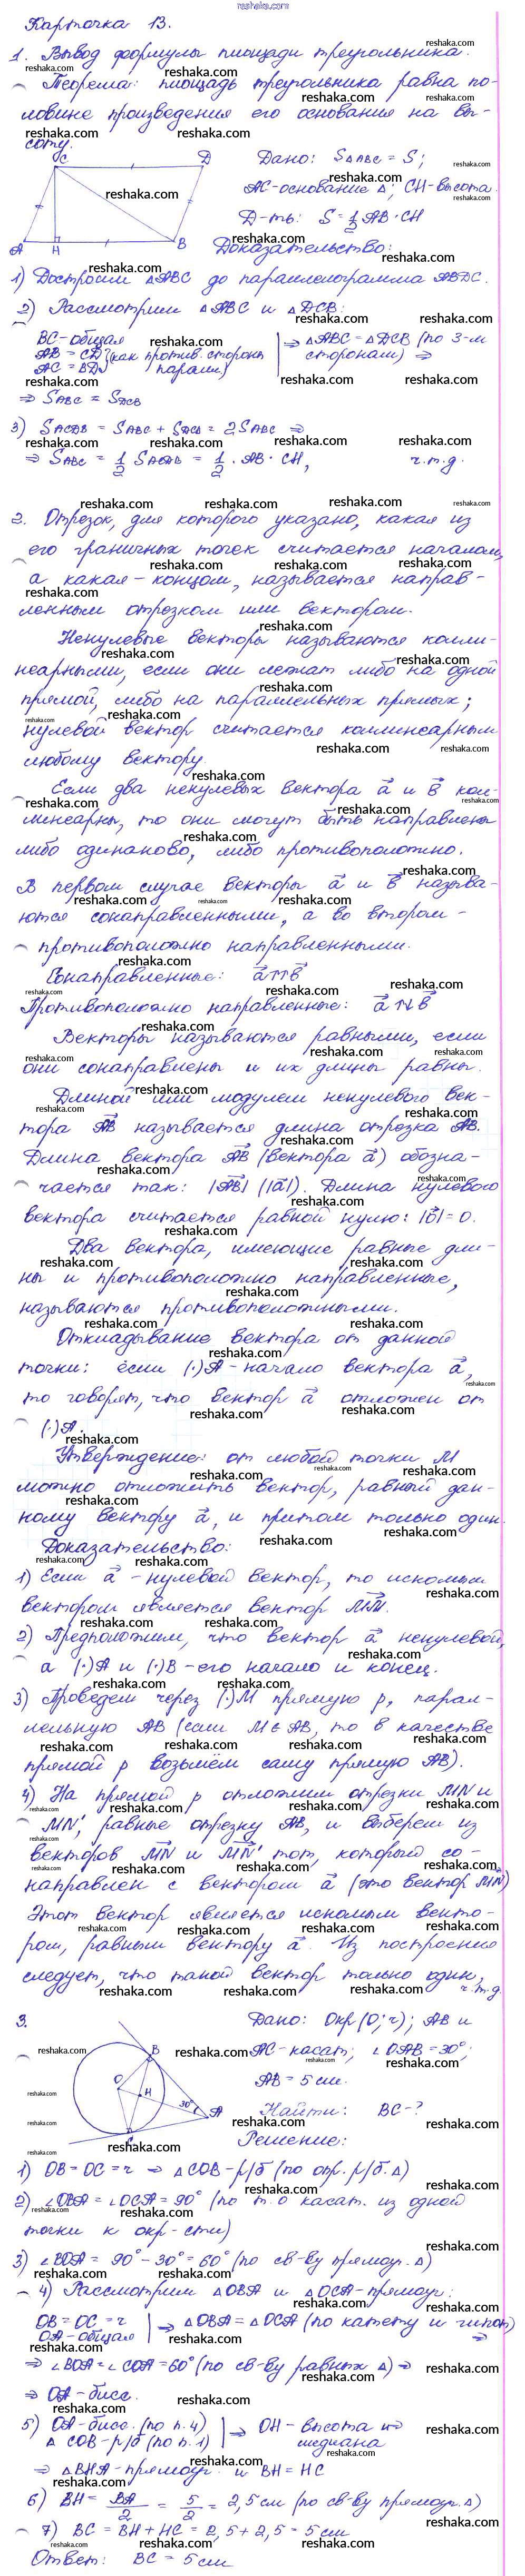 reshaka.com
Карточка 13.
1. Вывод формулы площади треугольника.
Теорема: площадь треугольника равна по-
ловине произведения его основания на вы-
соту.
Дано: S△ABC = S;
AC-основание △; CH-высота.
Д-ть: S = 1/2 AB · CH
C D A H B
Доказательство:
1) Достроим △ABC до параллелограмма ABDC.
2) Рассмотрим △ABC и △DCB:
BC-общая
AB = CD (как против. стороны
AC = BD паралл.)
⇒ △ABC = △DCB (по 3-м
сторонам) ⇒
⇒ SABC = SDCB
3) SACDB = SABC + SDCB = 2SABC ⇒
⇒ SABC = 1/2 SACDB = 1/2 · AB · CH, ч.т.д.
2. Отрезок, для которого указано, какая из
его граничных точек считается началом,
а какая - концом, называется направ-
ленным отрезком или вектором.
Ненулевые векторы называются колли-
неарными, если они лежат либо на одной
прямой, либо на параллельных прямых;
нулевой вектор считается коллинеарным
любому вектору.
Если два ненулевых вектора a⃗ и b⃗ кол-
линеарны, то они могут быть направлены
либо одинаково, либо противоположно.
В первом случае векторы a⃗ и b⃗ называ-
ются сонаправленными, а во втором -
противоположно направленными.
Сонаправленные: a⃗↑↑b⃗
Противоположно направленные: a⃗↑↓b⃗
Векторы называются равными, если
они сонаправлены и их длины равны.
Длиной или модулем ненулевого век-
тора AB⃗ называется длина отрезка AB.
Длина вектора AB⃗ (вектора a⃗) обозна-
чается так: |AB⃗| (|a⃗|). Длина нулевого
вектора считается равной нулю: |0⃗| = 0.
Два вектора, имеющие равные дли-
ны и противоположно направленные,
называются противоположными.
Откладывание вектора от данной
точки: если (·)A - начало вектора a⃗,
то говорят, что вектор a⃗ отложен от
(·)A.
Утверждение: от любой точки M
можно отложить вектор, равный дан-
ному вектору a⃗, и притом только один.
Доказательство:
1) Если a⃗ - нулевой вектор, то искомым
вектором является вектор MM⃗.
2) Предположим, что вектор a⃗ ненулевой,
а (·)A и (·)B - его начало и конец.
3) Проведем через (·)M прямую p, парал-
лельную AB (если M ∈ AB, то в качестве
прямой p возьмём саму прямую AB).
4) На прямой p отложим отрезки MN и
MN', равные отрезку AB, и выберем из
векторов MN⃗ и MN'⃗ тот, который со-
направлен с вектором a⃗ (это вектор MN⃗)
Этот вектор является искомым векто-
ром, равным вектору a⃗. Из построения
следует, что такой вектор только один,
ч.т.д.
3.
Дано: Окр(O; r); AB и
AC-касат; ∠OAB = 30°;
AB = 5 см.
Найти: BC - ?
B O H 30° A C
Решение:
1) OB = OC = r ⇒ △COB - р/б (по опр. р/б. △)
2) ∠OBA = ∠OCA = 90° (по т. о касат. из одной
точки к окр-сти)
3) ∠BOA = 90° - 30° = 60° (по св-ву прямоуг. △)
4) Рассмотрим △OBA и △OCA - прямоуг.:
OB = OC = r
OA - общая
⇒ △OBA = △OCA (по катету и гипот)
⇒
⇒ ∠BOA = ∠COA = 60° (по св-ву равных △) ⇒
⇒ OA - бисс.
5) OA - бисс. (по п. 4)
△COB - р/б (по п. 1)
⇒ OH - высота и
медиана
⇒ △BHA - прямоуг. и BH = HC
6) BH = BA/2 = 5/2 = 2,5 см (по св-ву прямоуг. △)
7) BC = BH + HC = 2,5 + 2,5 = 5 см
Ответ: BC = 5 см